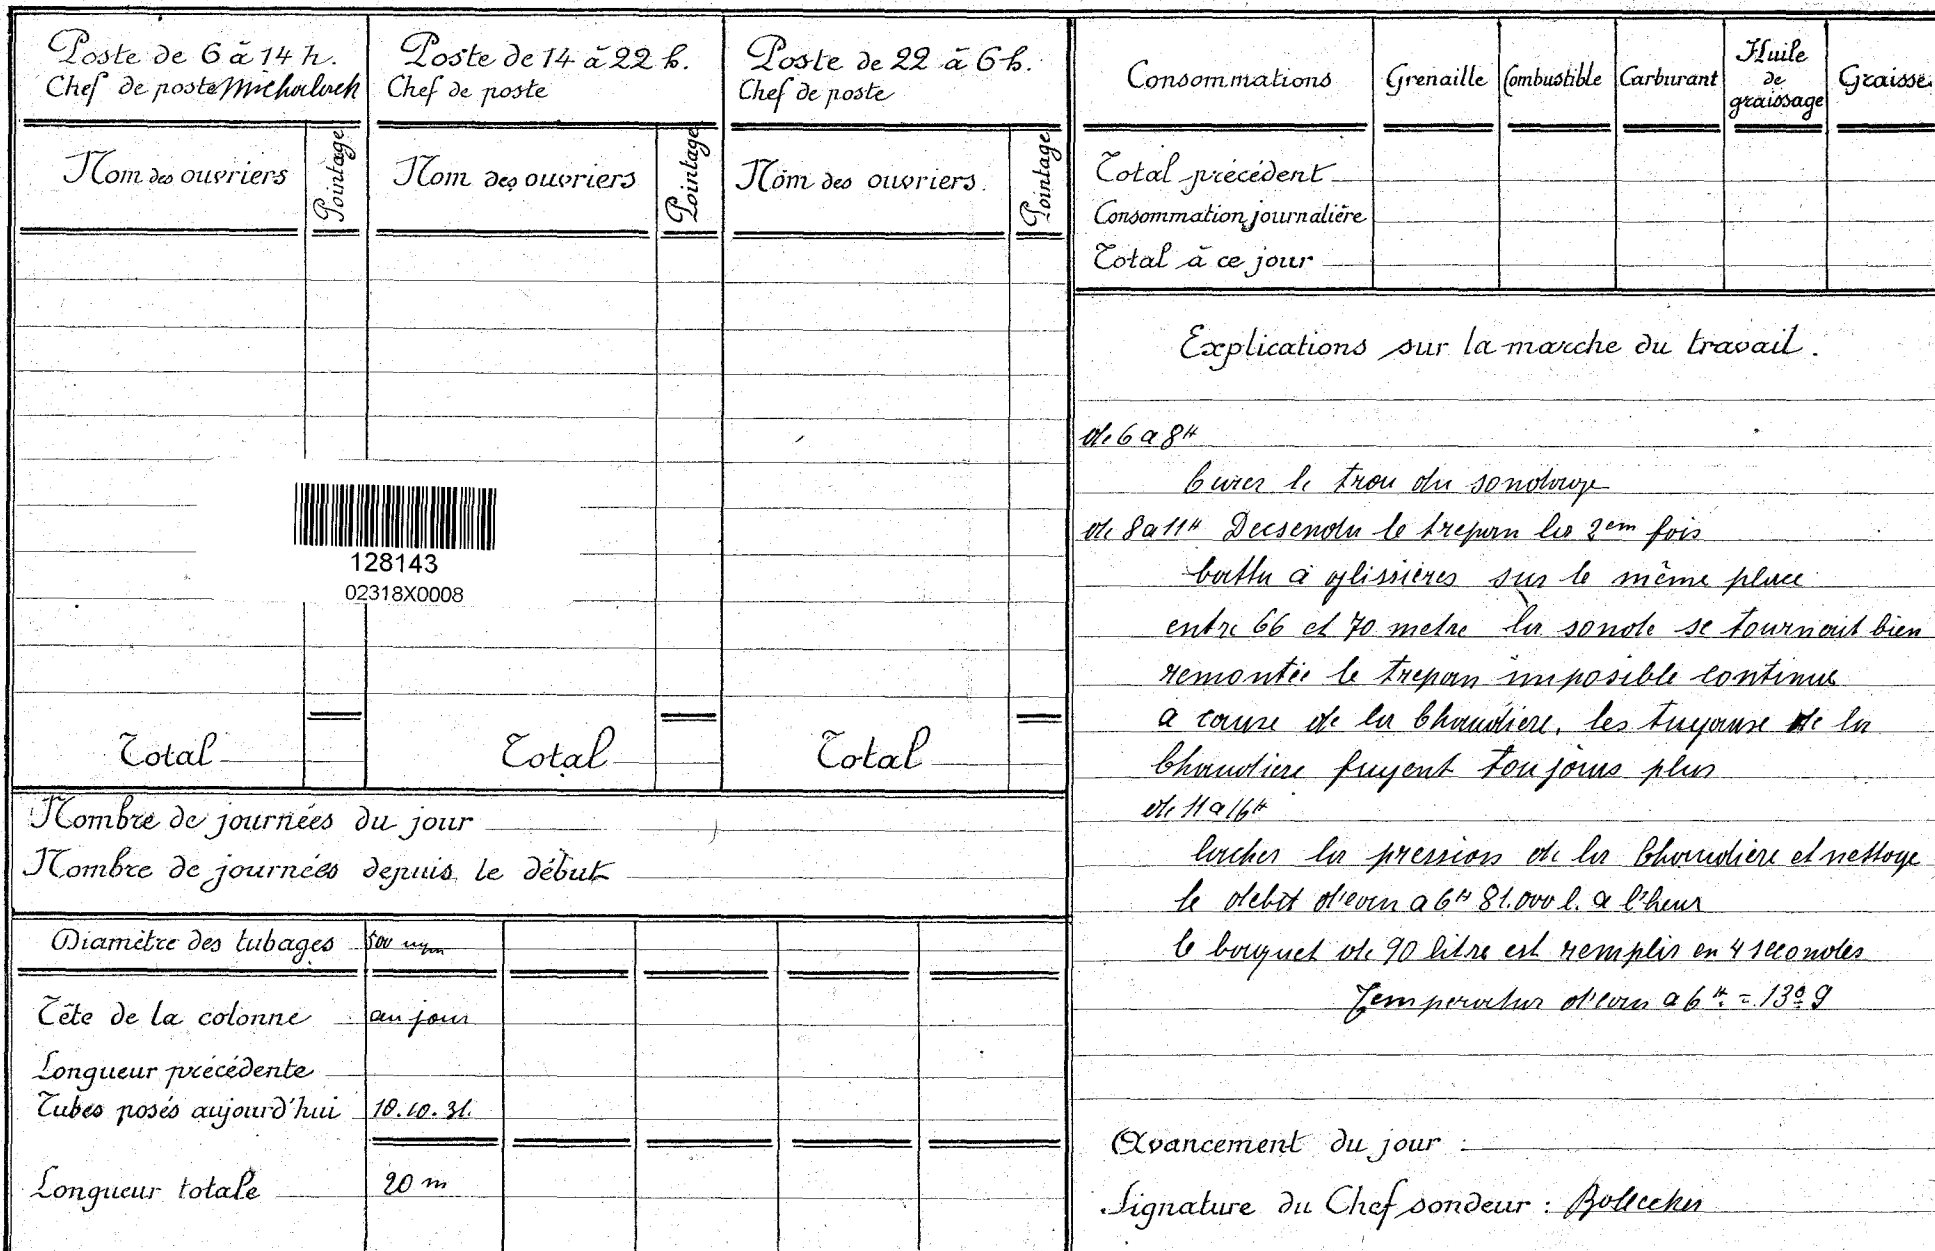 Poste de 6 à 14 h.
Chef de poste
Nom des ouvriers
Pointage
Poste de 14 à 22 h.
Chef de poste
Nom des ouvriers
Pointage
Poste de 22 à 6 h.
Chef de poste
Nom des ouvriers.
Pointage
128143
02318X0008
Total
Total
Total
Nombre de journées du jour
Nombre de journées depuis le début
Diamètre des tubages 500 m/m
Tête de la colonne au jour
Longueur précédente
Tubes posés aujourd'hui 10.10.31.
Longueur totale 20 m
Consommations Grenaille Combustible Carburant Huile de graissage Graisse
Total précédent
Consommation journalière
Total à ce jour
Explications sur la marche du travail.
de 6 a 8 H
Curer le trou du sondage
de 8 a 11 H Decsendu le trepan la 2em fois
battu à glissières sur le même place
entre 66 et 70 metre la sonde se tournait bien
remontée le trepan imposible continue
a cause de la Chaudiere, les tuyause de la
Chaudiere fuyent toujours plus
de 11 a 16 H
lacher la pression de la Chaudière et nettoye
le debit d'eau a 6 H 81.000 l. a l'heur
le baquet de 90 litre est remplis en 4 secondes
Temperatur d'eau a 6 H. = 13° 9
Avancement du jour :
Signature du Chef sondeur :